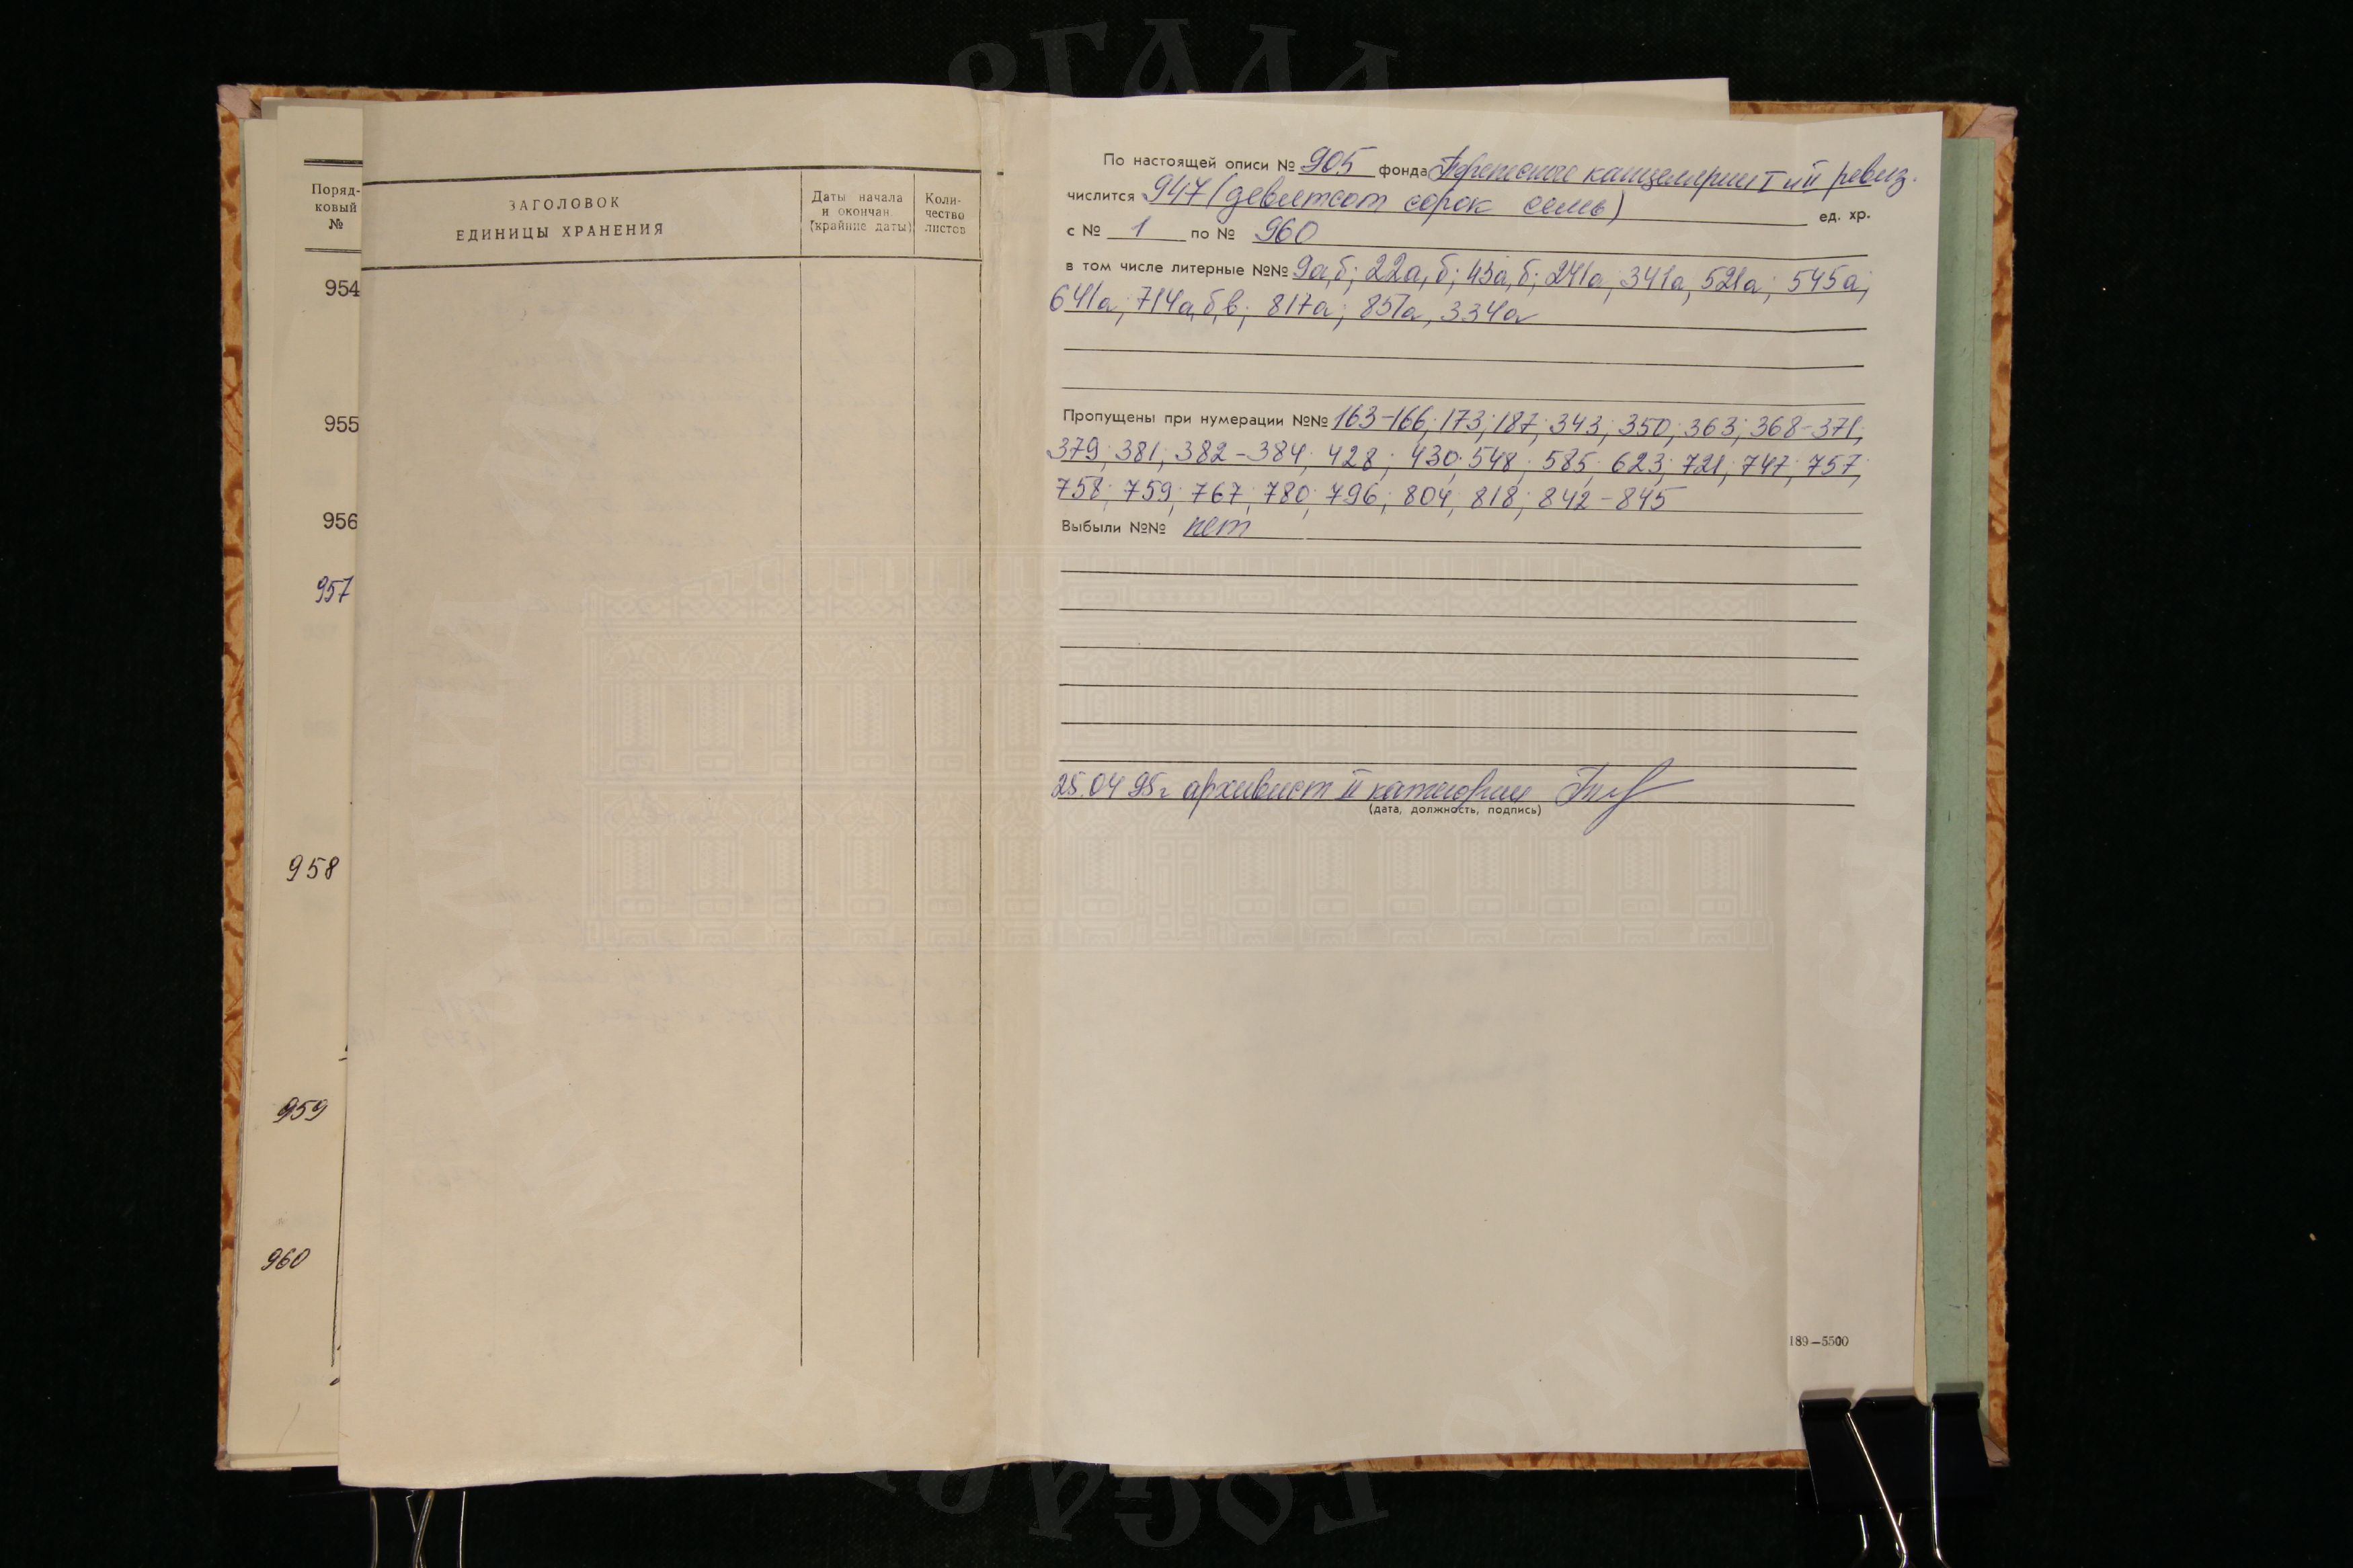 Поряд-
ковый
№
954
955
956
957
958
959
960
ЗАГОЛОВОК
ЕДИНИЦЫ ХРАНЕНИЯ
Даты начала
и окончан.
(крайние даты)
Коли-
чество
листов
По настоящей описи № 905 фонда канцелярии I и II ревиз.
числится 947 (девятсот сорок семь) ед. хр.
с № 1 по № 960
в том числе литерные №№ 9а,б; 22а,б; 43а,б; 241а; 341а, 521а; 545а;
641а; 714а,б,в; 817а; 857а, 334а
Пропущены при нумерации №№ 163-166; 173; 187; 343; 350; 363; 368-371;
379; 381; 382-384; 428; 430; 548; 585; 623; 721; 747; 757;
758; 759; 767; 780; 796; 804; 818; 842-845
Выбыли №№ нет
25.04 95г. архивист II категории
(дата, должность, подпись)
189—5500